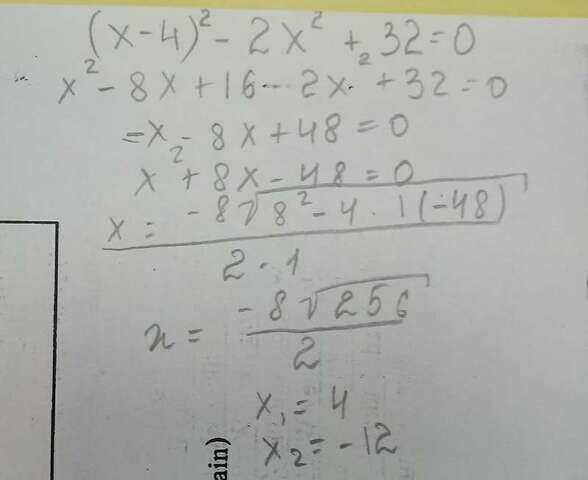 (x-4)² - 2x² + 32 = 0
x² - 8x + 16 - 2x² + 32 = 0
-x² - 8x + 48 = 0
x² + 8x - 48 = 0
x = -8√8² - 4 · 1(-48)
2 · 1
x = -8√256
2
x₁ = 4
x₂ = -12
ain)